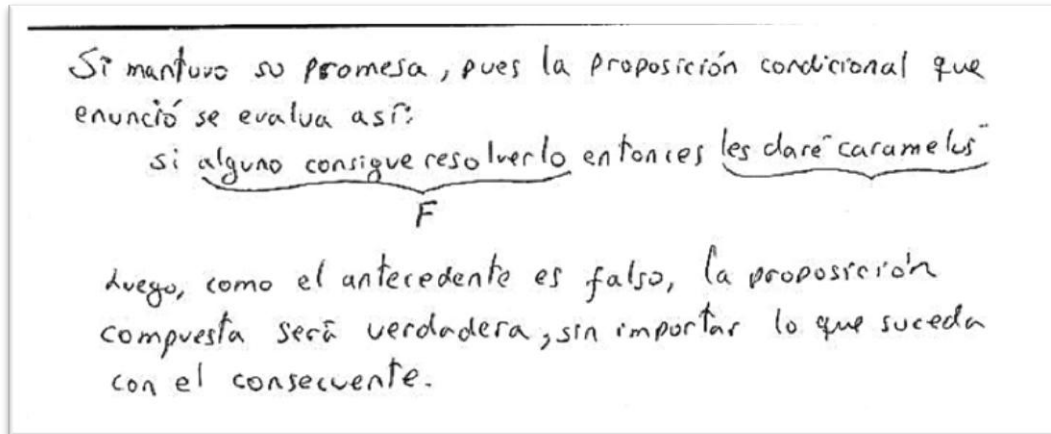 Si mantuvo su promesa, pues la proposición condicional que
enunció se evalua así:
si alguno consigue resolverlo entonces les daré "caramelos"
F
Luego, como el antecedente es falso, la proposición
compuesta será verdadera, sin importar lo que suceda
con el consecuente.